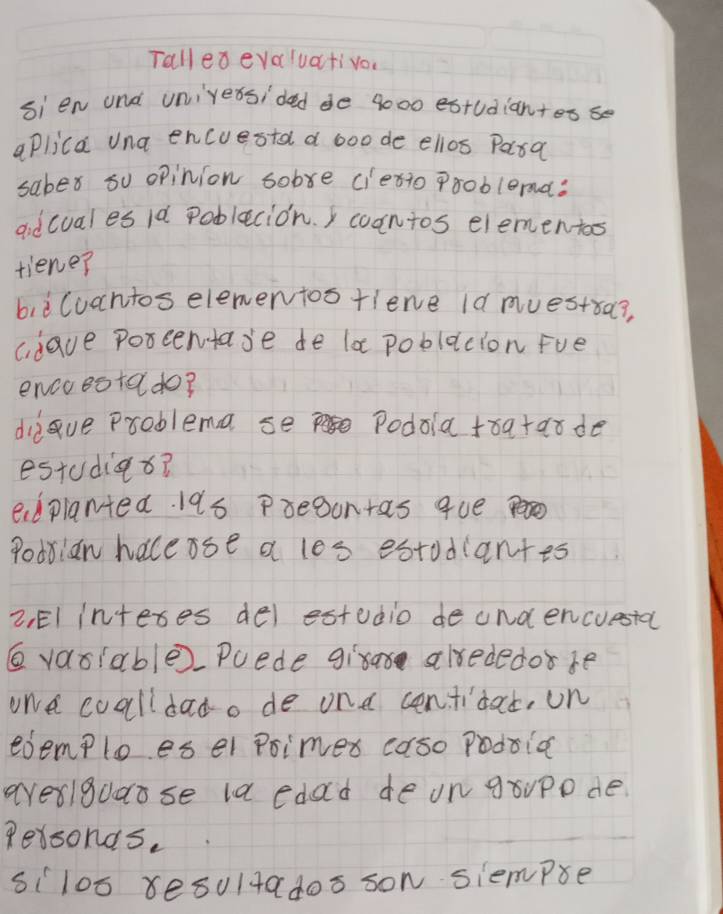 Taller evaluativo.
si en una universidad de 4000 estudiantes se
aplica una encuesta a 600 de ellos Para
saber su opinion sobre cierto Problema:
a.¿cual es la Población. y cuantos elementos
tiene?
b.¿cuantos elementos tiene la muestra?.
c.¿que Porcentaje de la poblacion Fue
encuestado?
d.¿que Problema se Podria tratar de
estudiar?
e.¿plantea las Preguntas que
Podrian hacerse a los estudiantes
2. El interes del estudio de una encuesta
(o variable). Puede girar alrededor de
una cualidad o de una cantidad. un
ejemplo es el Primer caso Podria
averiguarse la edad de un grupo de
Personas.
si los resultados son siempre